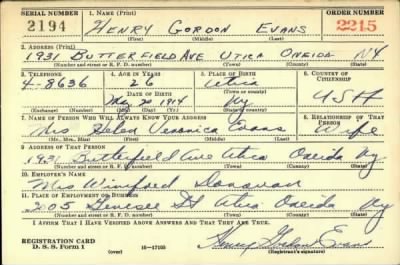 SERIAL NUMBER 1. NAME (Print) ORDER NUMBER
2194 HENRY GORDON EVANS 2215
(First) (Middle) (Last)
2. ADDRESS (Print)
1931 BUTTERFIELD AVE UTICA ONEIDA NY
(Number and street or R. F. D. number) (Town) (County) (State)
3. TELEPHONE 4. AGE IN YEARS 5. PLACE OF BIRTH 6. COUNTRY OF CITIZENSHIP
4-8636 26 Utica
DATE OF BIRTH (Town or county)
May 20 1914 Ny USA
(Exchange) (Number) (Mo.) (Day) (Yr.) (State or country)
7. NAME OF PERSON WHO WILL ALWAYS KNOW YOUR ADDRESS 8. RELATIONSHIP OF THAT PERSON
Mrs Helen Veronica Evans Wife
(Mr., Mrs., Miss) (First) (Middle) (Last)
9. ADDRESS OF THAT PERSON
1931 Butterfield Ave Utica Oneida Ny
(Number and street or R. F. D. number) (Town) (County) (State)
10. EMPLOYER'S NAME
Mrs Winifred Donovan
11. PLACE OF EMPLOYMENT OR BUSINESS
2005 Genesee St Utica Oneida Ny
(Number and street or R. F. D. number) (Town) (County) (State)
I AFFIRM THAT I HAVE VERIFIED ABOVE ANSWERS AND THAT THEY ARE TRUE.
REGISTRATION CARD
D. S. S. Form 1 (over) 16-17105 Henry Gordon Evans
(Registrant's signature)